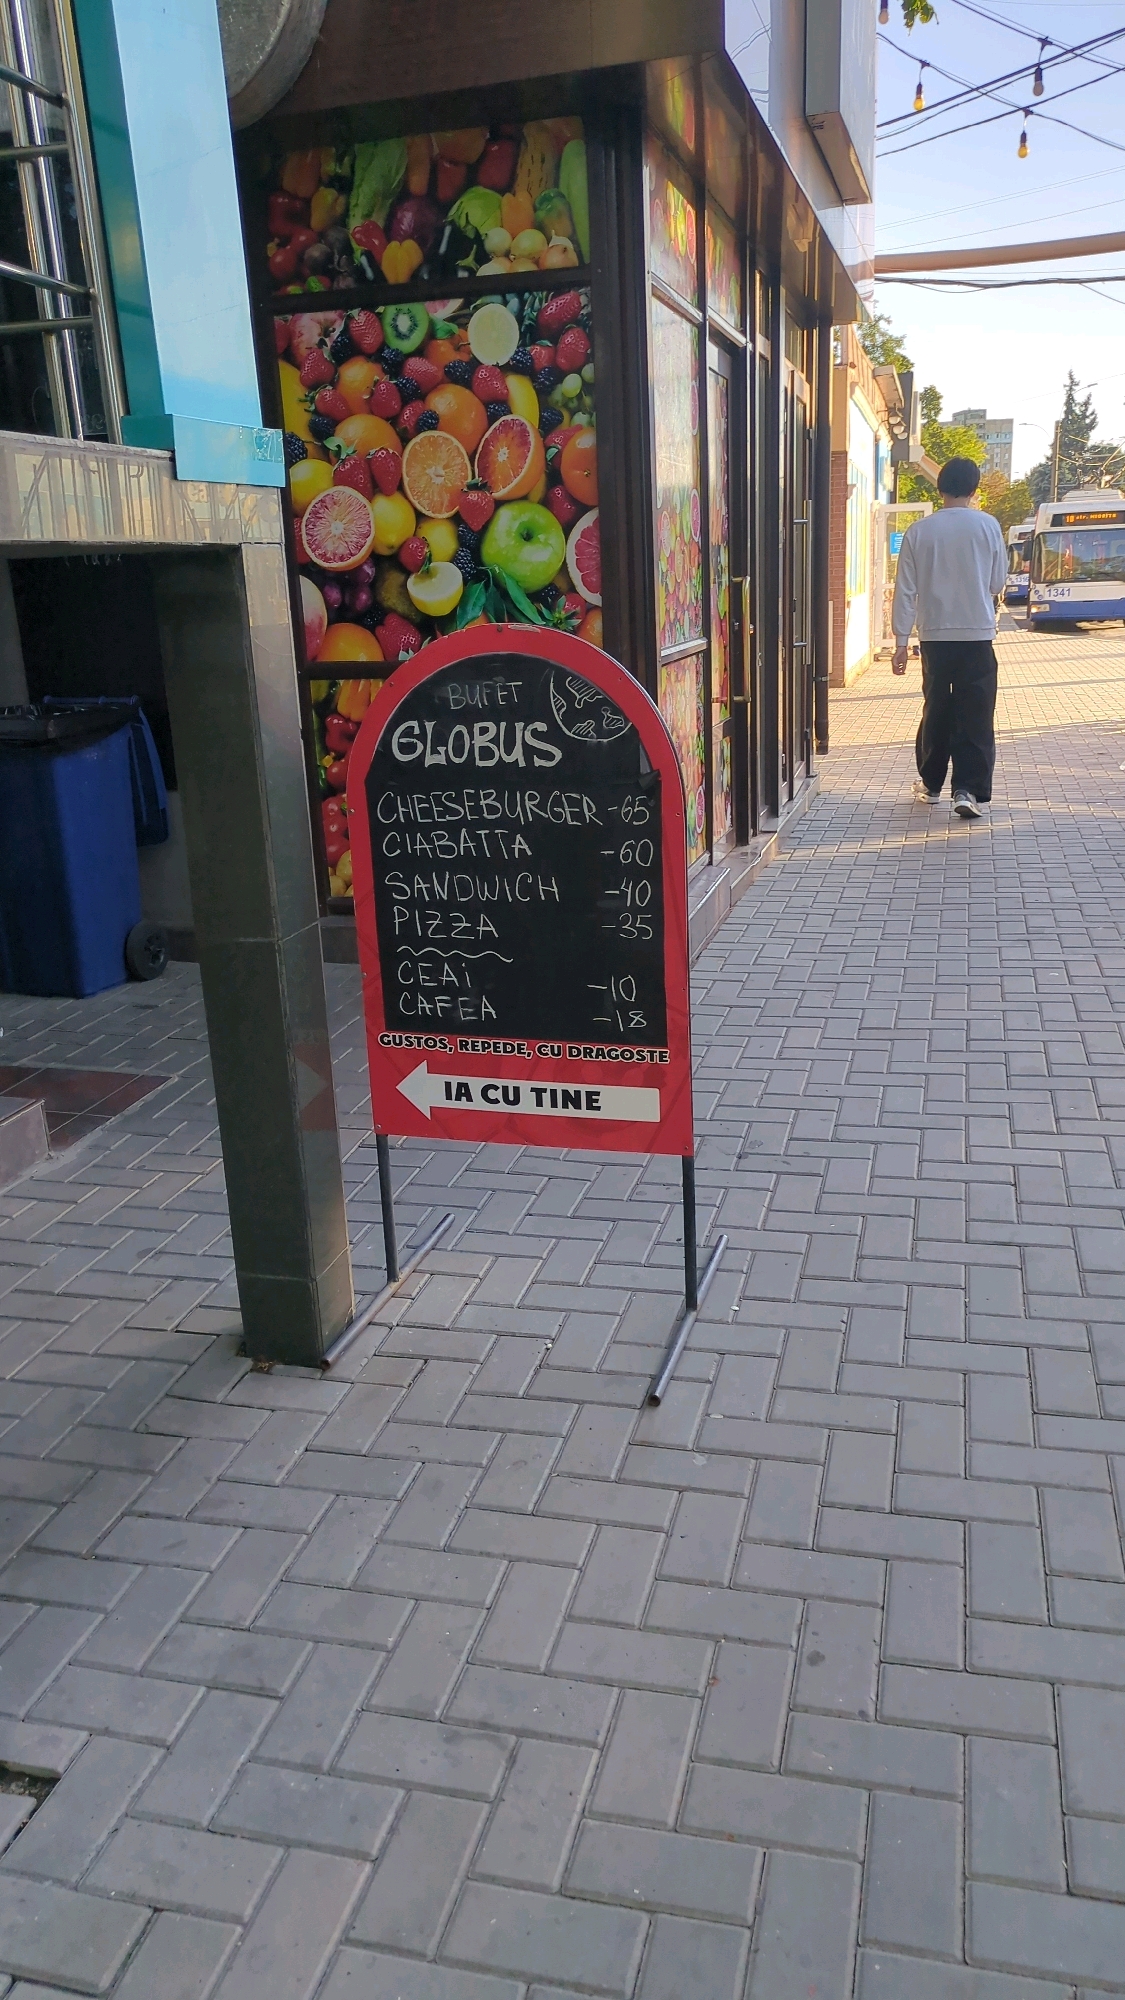 BUFET
GLOBUS
CHEESEBURGER -65
CIABATTA -60
SANDWICH -40
PIZZA -35
CEAi -10
CAFEA -18
GUSTOS, REPEDE, CU DRAGOSTE
IA CU TINE
1341